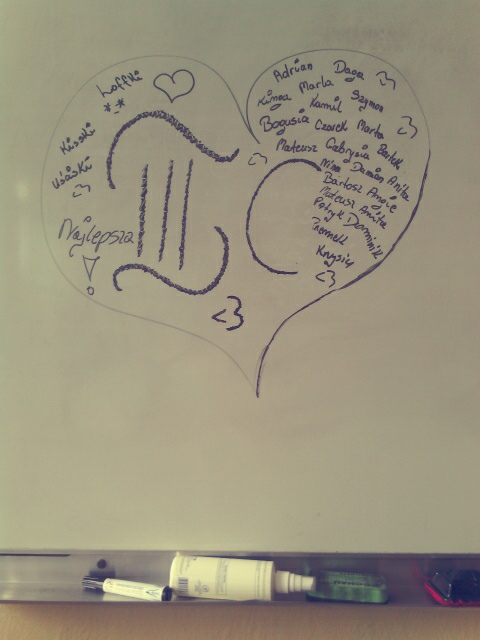 Loffki
*_*
Kisski
Uśaśki
<3
Najlepsza
!
II C
<3
Adrian Daga <3
Kinga Marta Szymon
Kamil
Bogusia Czarek Marta <3
Mateusz Gabrysia Bartek
<3
Nina Damian Anita
Bartosz
Mateusz Anita
Patryk Dominik
Przemek
Krysiu
<3